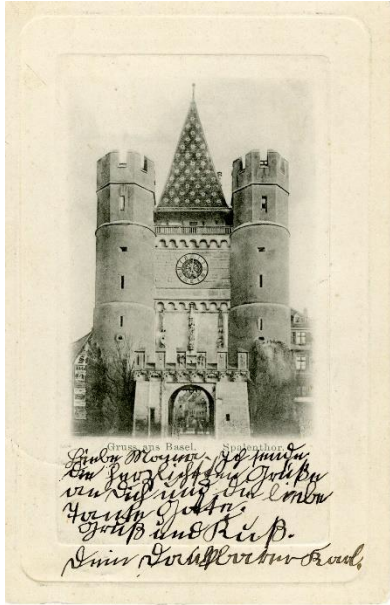 Gruss aus Basel. Spalenthor.
Liebe Mama. Ich sende
die herzlichsten Grüße
an Dich und die liebe
Tante
Gruß und Kuß.
Dein Dankbarer Karl.